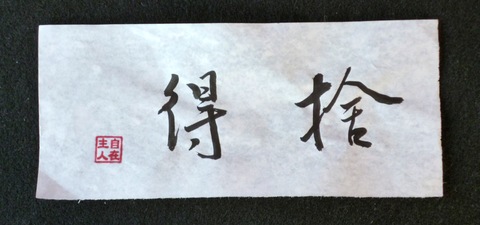 捨得
自在
主人